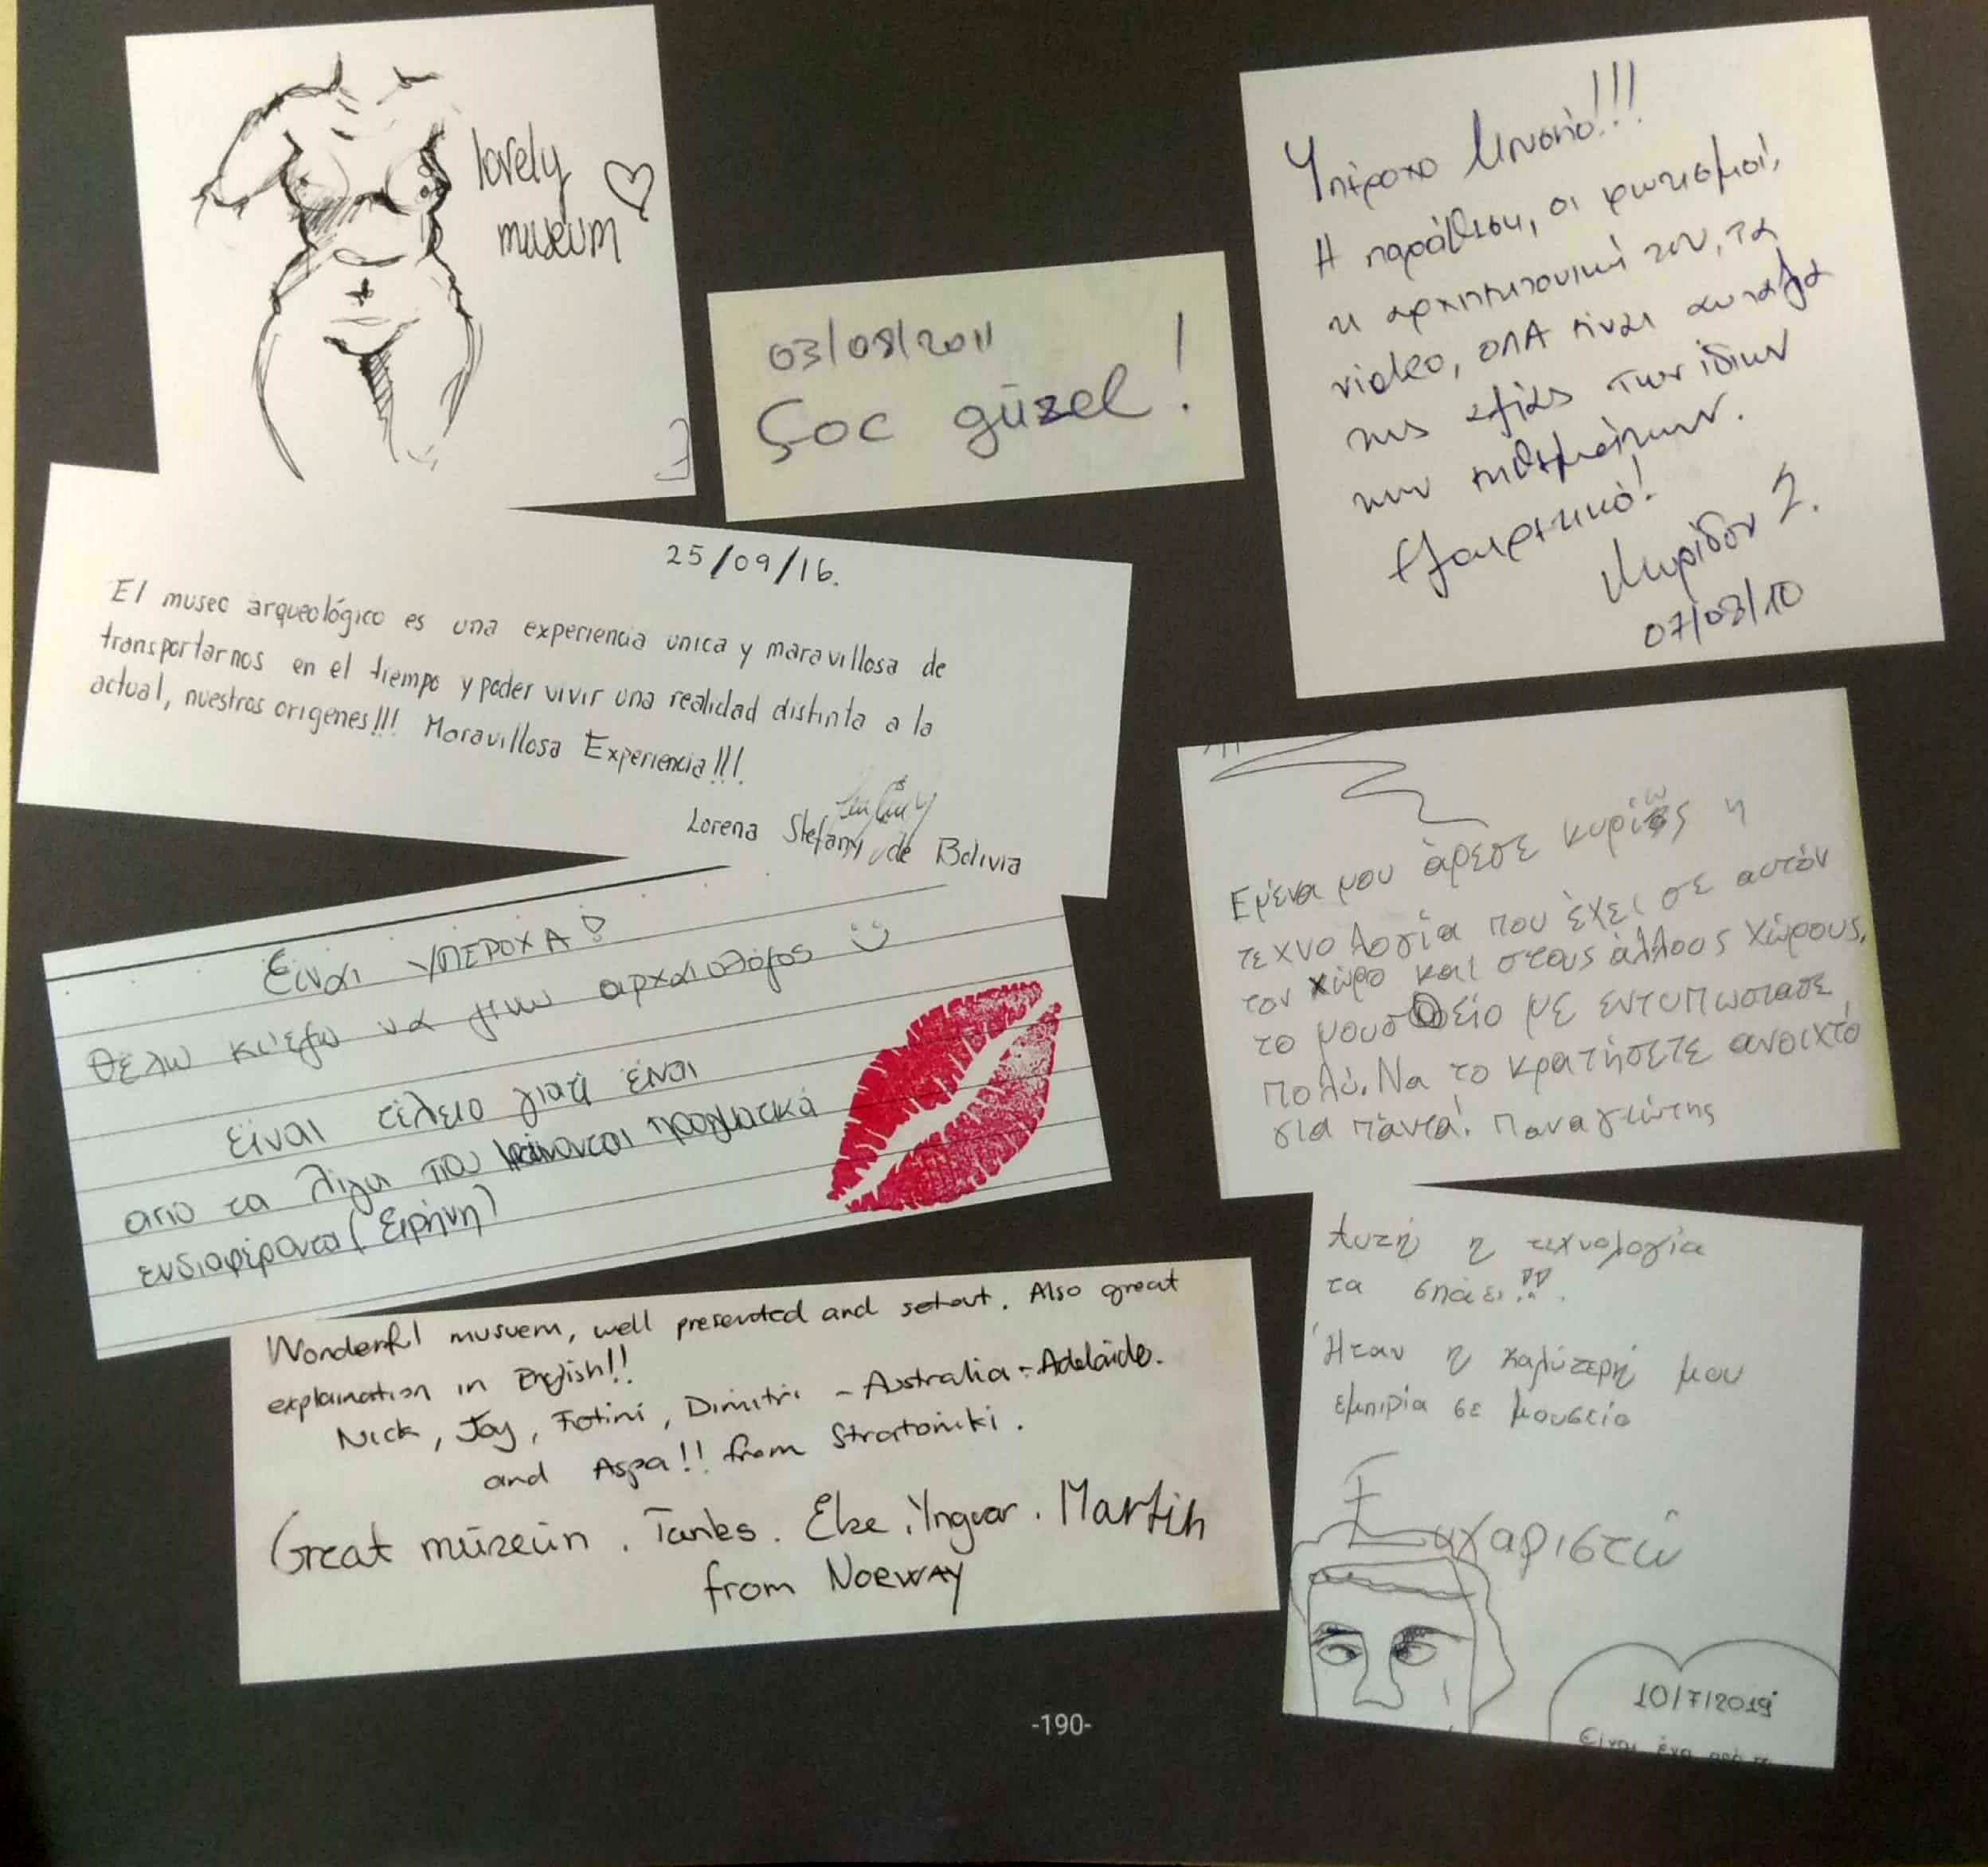 lovely
museum
03/08/2011
Çoc güzel!
Υπέροχο Μουσείο!!!
Η παράθεση, οι φωτισμοί,
η αρχιτεκτονική του, τα
video, ΟΛΑ είναι αντάξια
της αξίας των ίδιων
των εκθεμάτων.
Εξαιρετικό!
07/08/10
25/09/16.
El museo arqueológico es una experiencia unica y maravillosa de
transportarnos en el tiempo y poder vivir una realidad distinta a la
actual, nuestros origenes!!! Maravillosa Experiencia!!!
Lorena Stefany de Bolivia
Εμένα μου άρεσε κυρίως η
τεχνολογία που έχει σε αυτόν
τον χώρο και στους άλλους χώρους,
το μουσείο με εντυπωσιασε
πολύ. Να το κρατήσετε ανοιχτό
για πάντα! Παναγιώτης
Είναι ΥΠΕΡΟΧΑ!
Θέλω κι'εγω να γινω αρχαιολόγος
Είναι τέλειο γιατί είναι
απο τα λίγα που πραγματικά
ενδιαφέροντα (Ειρήνη)
Wonderful musuem, well presented and setout. Also great
explaination in English!!
Nick, Joy, Fotini, Dimitri - Australia - Adelaide.
and Aspa!! from Stratoniki.
Great müzeün. Tanks. Else. Yngvar. Martin
from NORWAY
Αυτή η τεχνολογία
τα σπάει!!
Ήταν η καλύτερή μου
εμπιρία σε μουσείο
Ευχαριστώ
10/7/2019
Είναι ένα από τα
-190-